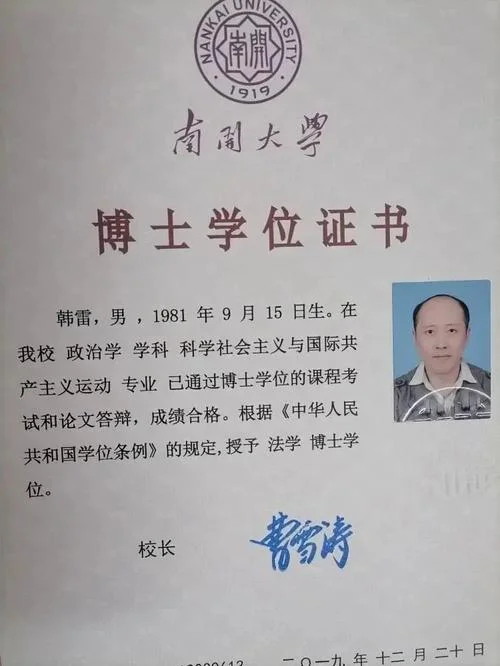 NANKAI UNIVERSITY
南開
1919
南開大學
博士学位证书
韩雷，男 ，1981 年 9 月 15 日生。在
我校 政治学 学科 科学社会主义与国际共
产主义运动 专业 已通过博士学位的课程考
试和论文答辩，成绩合格。根据《中华人民
共和国学位条例》的规定,授予 法学 博士学
位。
校长
曹雪涛
二〇一九 年 十二 月 二十 日